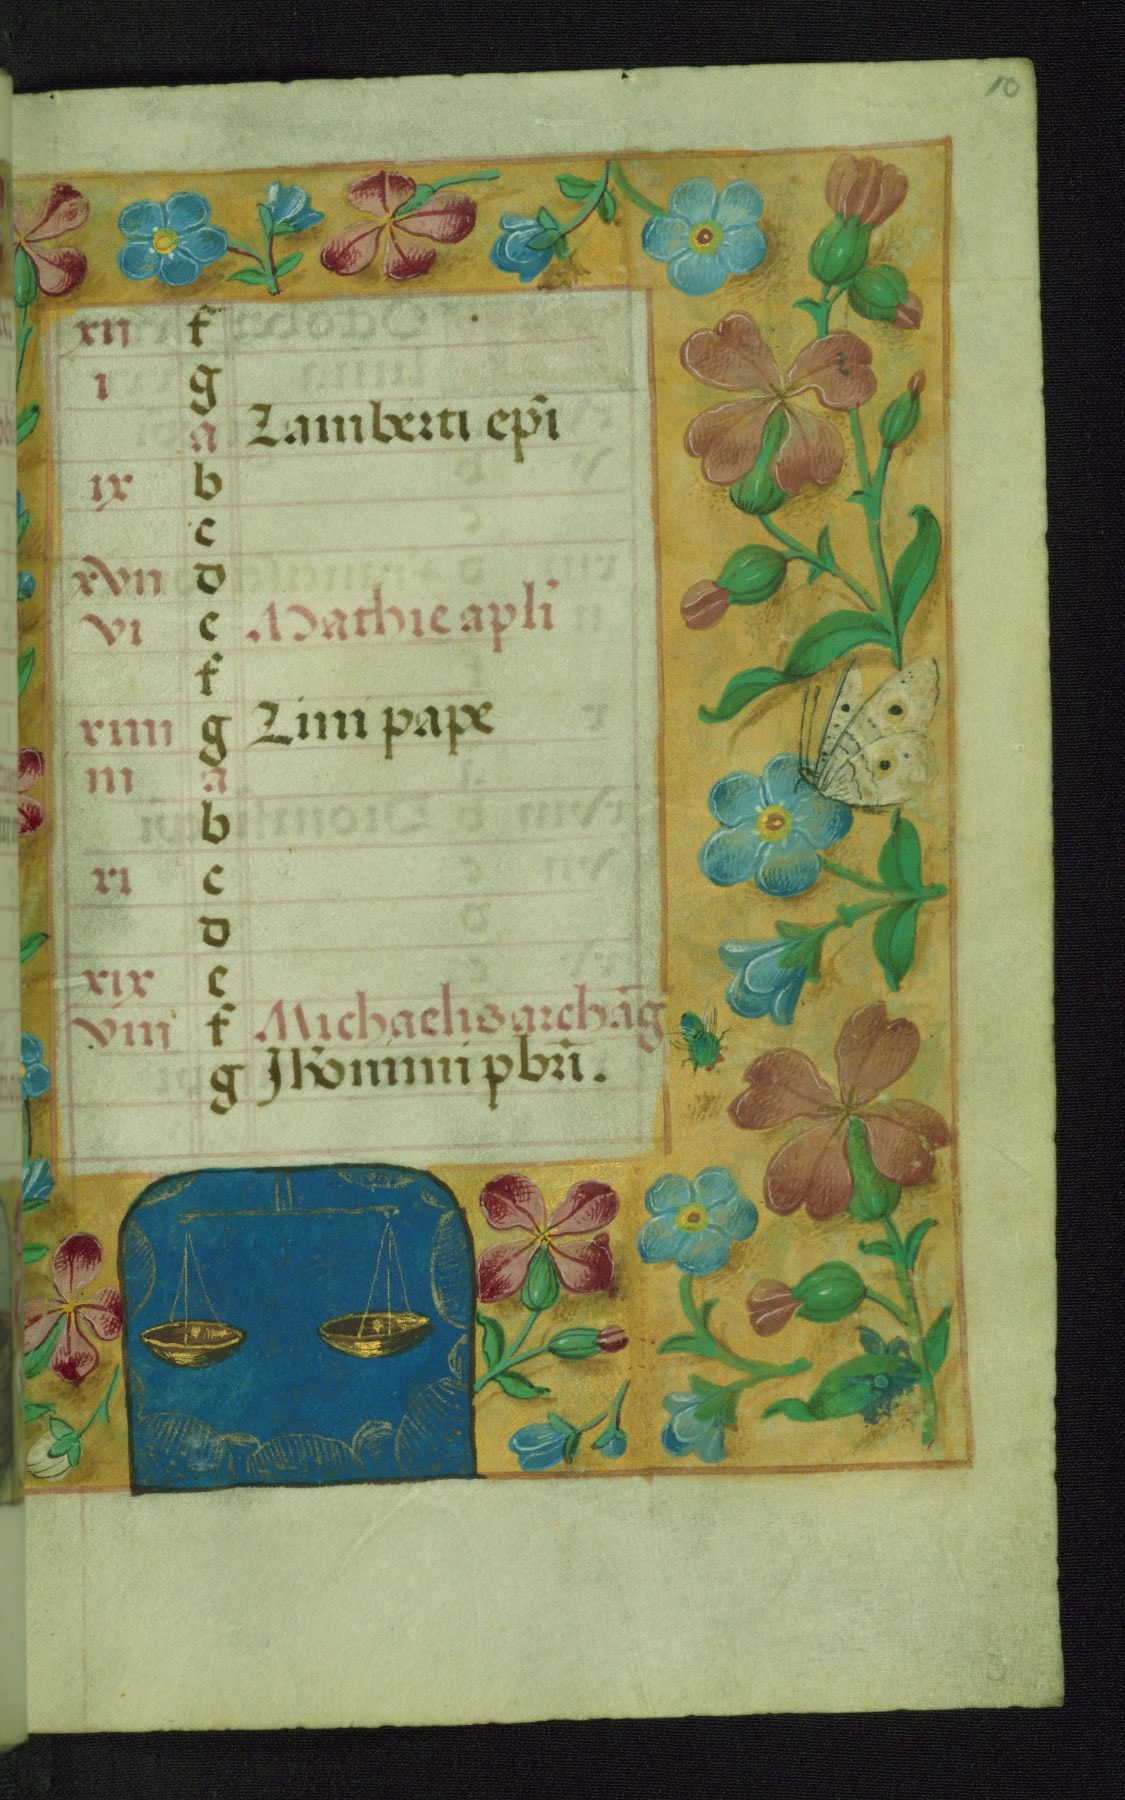 10
xii f
i g
a Lamberti ep̄i
ix b
c
xvii d
vi e Mathie apl̄i
f
xiiii g Lini pape
iii a
b
xi c
d
xix e
viii f Michaelis archāg
g Jh̄onimi pbr̄i.